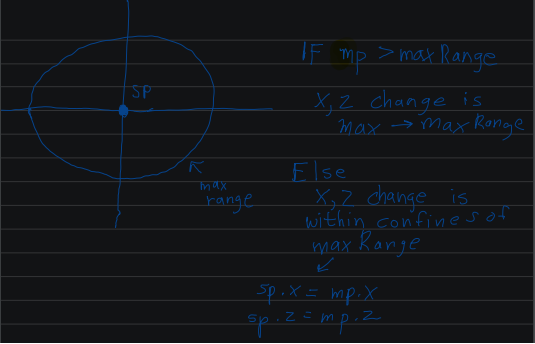 SP
max
range
IF mp > max Range
X, Z change is
max → max Range
Else
X, Z change is
within confines of
max Range
sp.x = mp.x
sp.z = mp.z